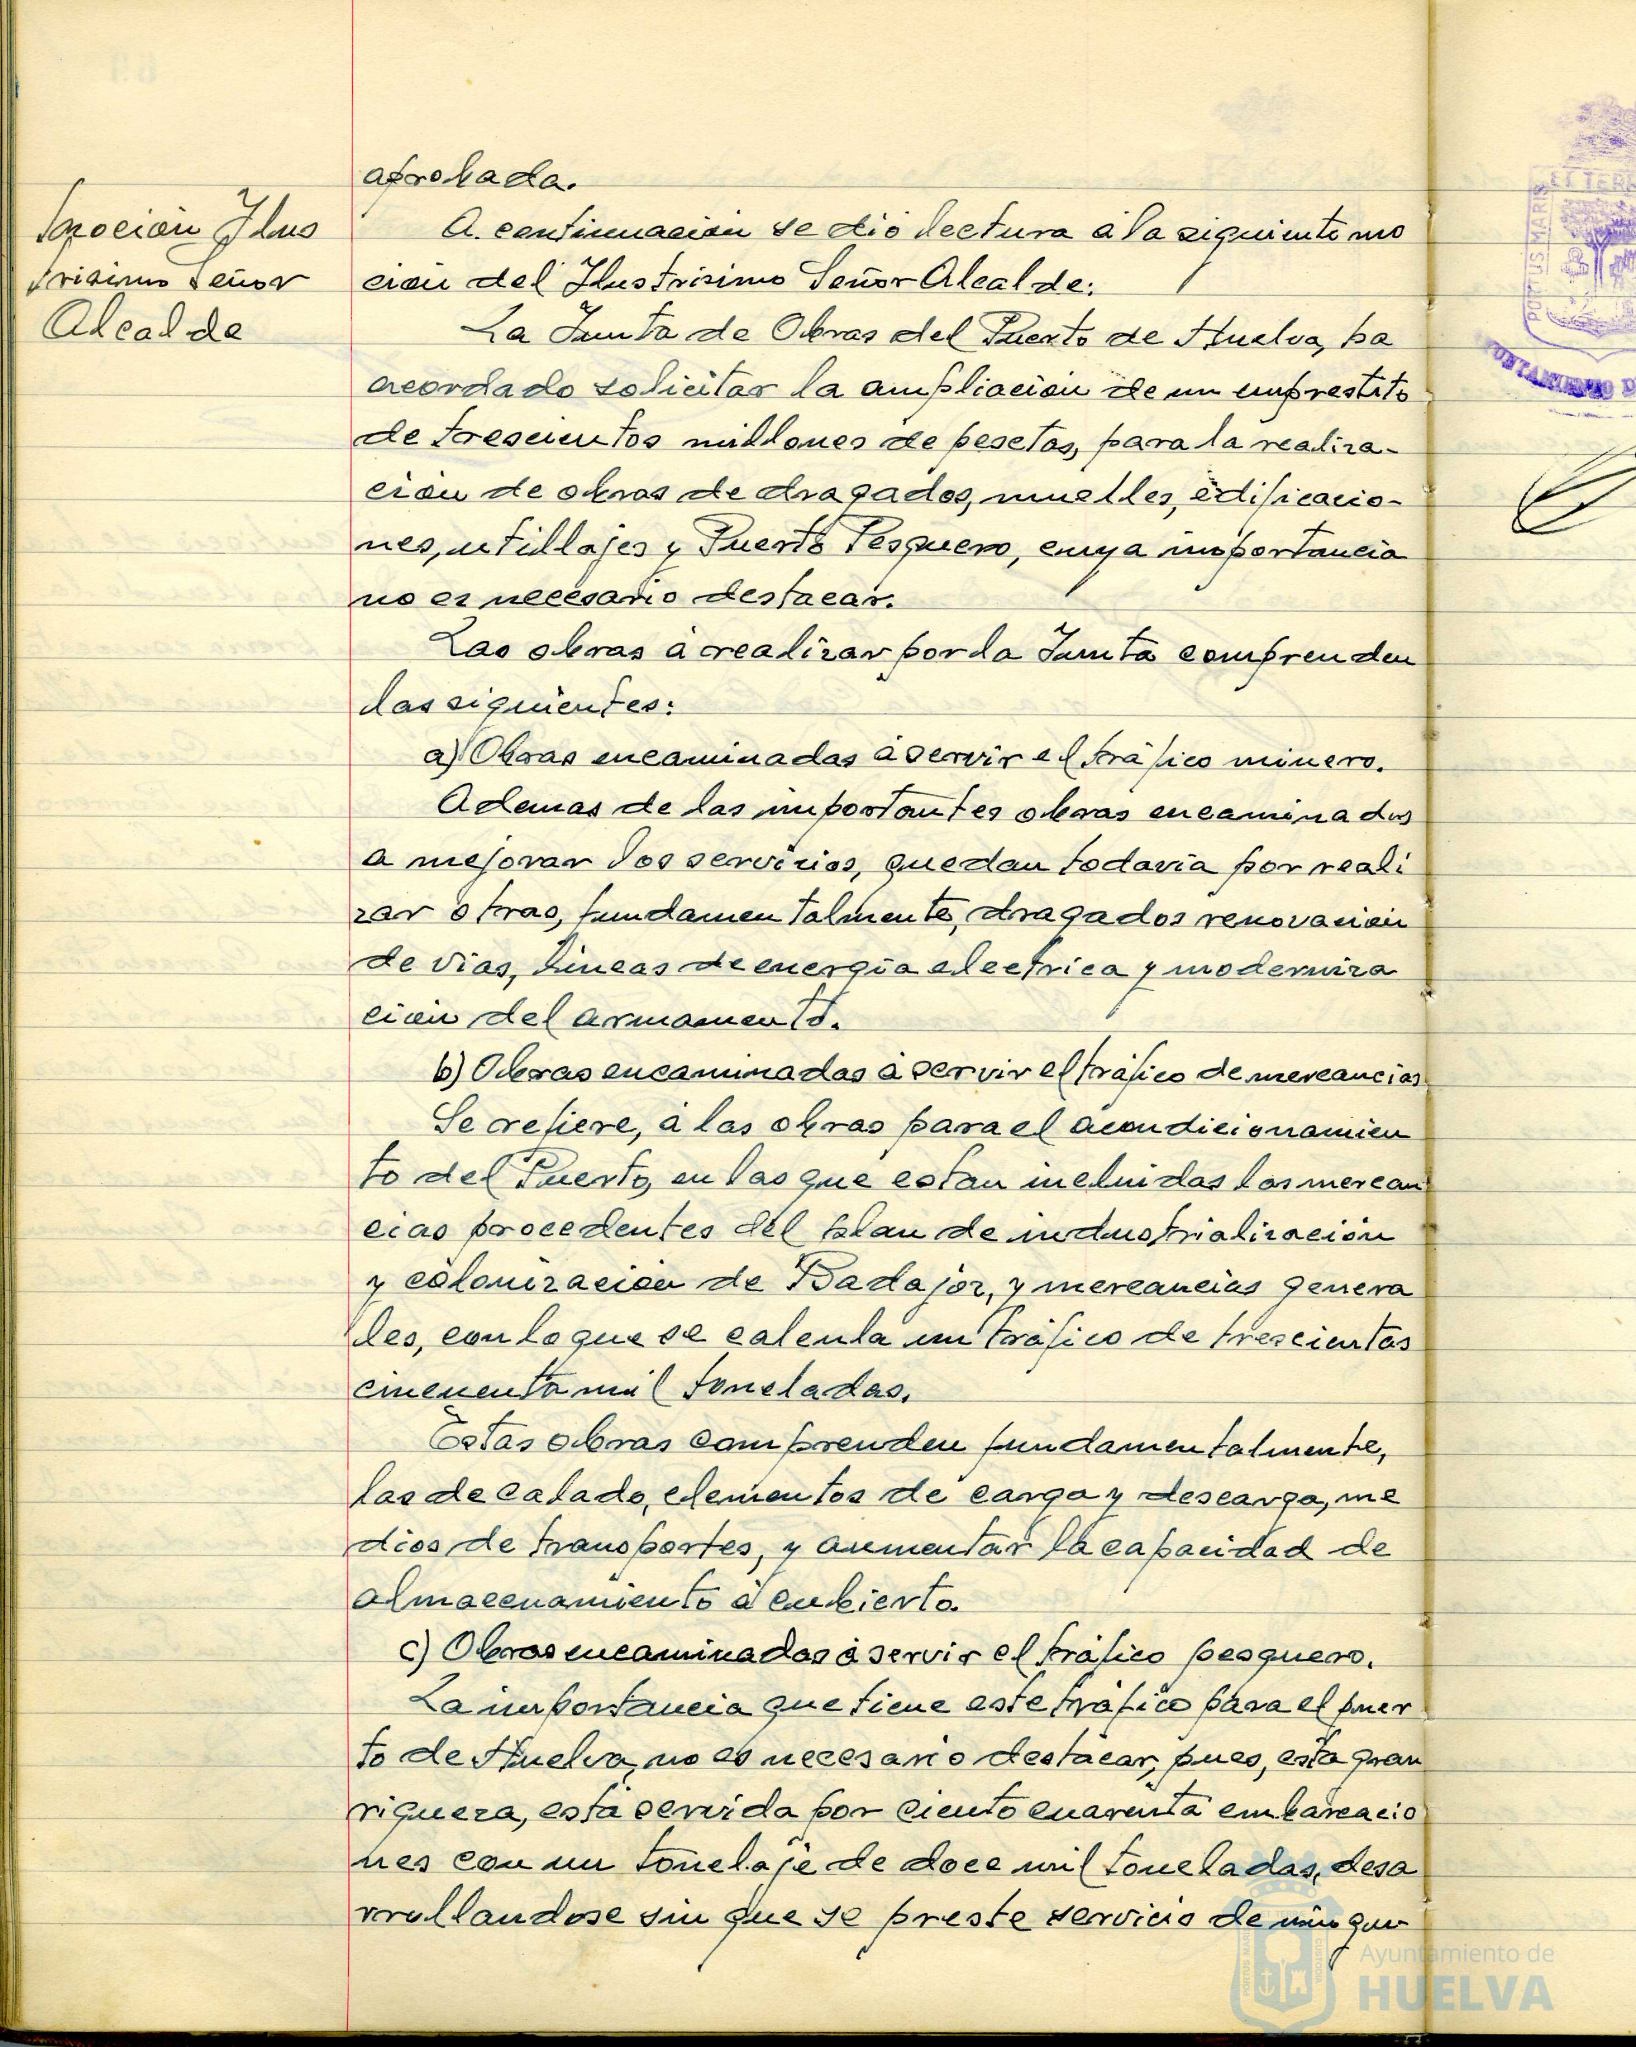 aprobada.
Moción Ilus
trisimo Señor
Alcalde
A continuación se dió lectura á la siguiente mo
ción del Ilustrisimo Señor Alcalde:
La Junta de Obras del Puerto de Huelva, ha
acordado solicitar la ampliación de un emprestito
de trescientos millones de pesetas, para la realiza-
ción de obras de dragados, muelles, edificacio-
nes, utillajes y Puerto Pesquero, cuya importancia
no es necesario destacar.
Las obras á realizar por la Junta comprenden
las siguientes:
a) Obras encaminadas á servir el tráfico minero.
Ademas de las importantes obras encaminadas
a mejorar los servicios, quedan todavia por reali
zar otras, fundamentalmente, dragados renovación
de vias, lineas de energia electrica y moderniza
ción del armamento.
b) Obras encaminadas á servir el tráfico de mercancias
Se refiere, á las obras para el acondicionamien
to del Puerto, en las que estan incluidas las mercan
cias procedentes del plan de industrialización
y colonización de Badajoz, y mercancias genera
les, con lo que se calcula un tráfico de trescientas
cincuenta mil toneladas.
Estas obras comprenden fundamentalmente,
las de calado, elementos de carga y descarga, me
dios de transportes, y aumentar la capacidad de
almacenamiento á cubierto.
c) Obras encaminadas á servir el tráfico pesquero.
La importancia que tiene este tráfico para el puer
to de Huelva, no es necesario destacar, pues, esta gran
riqueza, está servida por ciento cuarenta embarcacio
nes con un tonelaje de doce mil toneladas, desa
rrollandose sin que se preste servicio de ningun
PORTUS MARIS
ET TERR
Ayuntamiento de
HUELVA